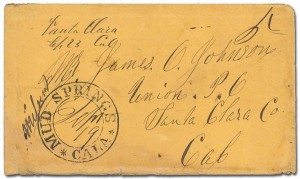 Santa Clara
Sep 23 Cal
Mr James O. Johnson
Union P. O
Santa Clara Co
Cal
MUD SPRINGS
Sept
19
CALA